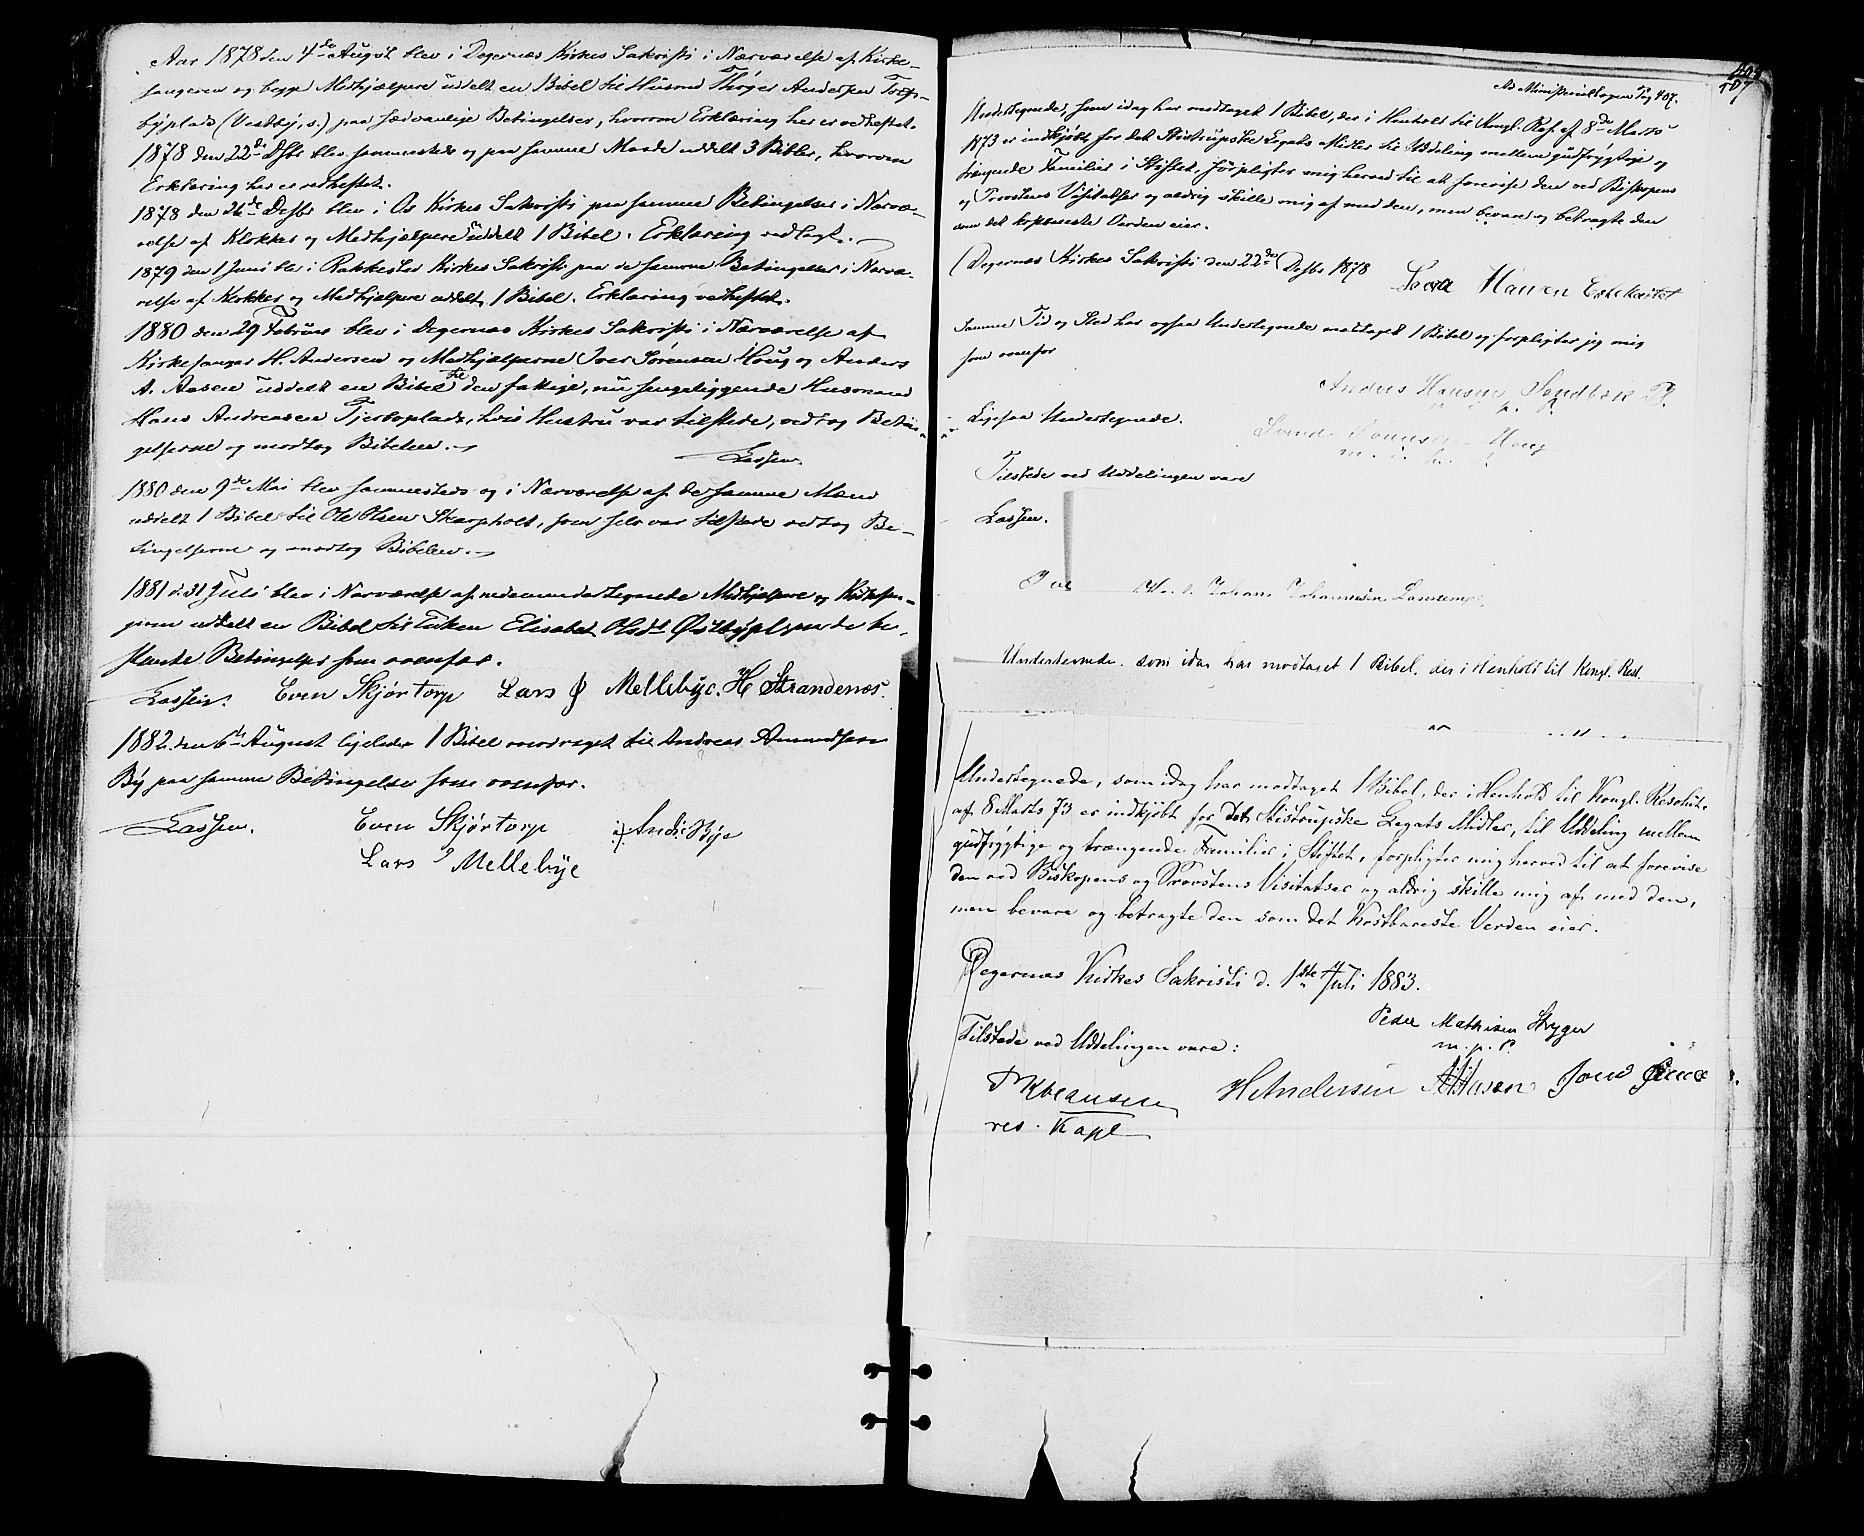 Aar 1878 den 4de August blev i Degernæs Kirkes Sakristi i Nærværelse af Kirke-
sangeren og begge Medhjælpere uddelt en Bibel til Husmd Thøger Andersen Torp-
byplads (Vestby, s.) paa sædvanlige Betingelser, hvorom Erklæring her er vedheftet.
1878 den 22de Dsbr blev sammesteds og paa samme Maade uddelt 3 Bibler, hvorom
Erklæring her er vedheftet.
1878 den 26de Desbr blev i Os Kirkes Sakristi paa samme Betingelser i Nærvæ-
relse af Klokker og Medhjælpere uddelt 1 Bibel. Erklæring vedlagt.
1879 den 1 Juni blev i Rakkestad Kirkes Sakristi paa de samme Betingelser i Nærvæ-
relse af Klokker og Medhjælpere uddelt 1 Bibel. Erklæring vedheftet.
1880 den 29 Februar blev i Degernæs Kirkes Sakristi i Nærværelse af
Kirkesanger H. Andersen og Medhjælperne Iver Sørensen Houg og Anders
A. Aasen uddelt en Bibel til den fattige, nu sengeliggende Husmand
Hans Andreassen Plads, hvis Hustru var tilstede, vedtog Betin-
gelserne og modtog Bibelen.
Lassen.
1880 den 9de Mai blev sammesteds og i Nærværelse af de samme Mænd
uddelt 1 Bibel til Ole Olsen Skarpholt, som selv var tilstede vedtog Be-
tingelserne og modtog Bibelen.
1881 d. 31 Juli blev i Nærværelse af nedenundertegnede Medhjælpere og Kirkesan-
geren uddelt en Bibel til Enken Elisabet Olsdt Østbypl. paa de be-
stemte Betingelser som ovenfor.
Lassen. Even Skjørtorp Lars J Mellebye. H Strandenæs.
1882 den 6te August ligeledes 1 Bibel overdraget til Andreas Amundsen
By paa samme Betingelser som ovenfor.
Lassen. Even Skjørtorp Andr. Bye
Lars J Mellebye
Ad Ministerialbogen Pag 407.
407
Undertegnede, som idag har modtaget 1 Bibel, der i Henhold til Kongl. Res. af 8de Marts
1873 er indkjøbt for det Stistrupske Legats Midler til Uddeling mellem gudfrygtige og
trængende Familier i Stiftet, forpligter mig herved til at forevise den ved Biskopens
og Provstens Visitatser og aldrig skille mig af med den, men bevare og betragte den
som det kostbareste Verden eier.
Degernæs Kirkes Sakristi den 22de Desbr 1878
Hansen
Samme Tid og Sted har ogsaa Undertegnede modtaget 1 Bibel og forpligter jeg mig
som ovenfor
Anders Hansen Sandbæk Pl.
m. p. P.
Ligesaa Undertegnede.
Houg
Tilstede ved Uddelingen vare
Lassen.
Johans Johannesen
Undertegnede, som idag har modtaget 1 Bibel, der i Henhold til Kongl. Resl.
Undertegnede, som idag har modtaget 1 Bibel, der i Henhold til Kongl. Resolut.
af 8 Marts 73 er indkjøbt for det Stistrupske Legats Midler, til Uddeling mellem
gudfrygtige og trængende Familier i Stiftet, forpligter mig herved til at forevise
den ved Biskopens og Provstens Visitatser og aldrig skille mig af med den,
men bevare og betragte den som det Kostbareste Verden eier.
Degernæs Kirkes Sakristi d. 1ste Juli 1883.
Peder Mathisen Stryger
m. p. P.
Tilstede ved Uddelingen vare:
H Andersen A A Aasen
res. Kapl